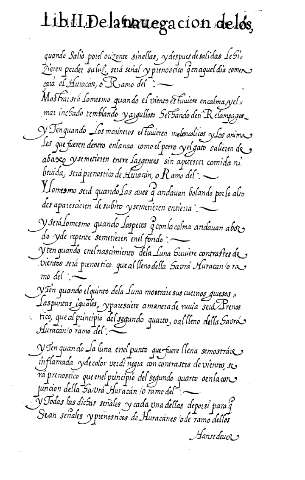 Lib II De la nauegacion de los
quando Salio por el oriente sin ellas, y despues de salidas le hi
zieren perder su luz, sera señal y pronostico que en aquel dia comen
çara el Huracan, o Ramo del
Mostrara lo mesmo quando el viento estuuiere en calma, y el
mar inchado temblando y
yTen quando Los marineros estuuieren melancolicos y Los anima
les que fueren dentro en la nao como el perro y el gato callaren de
abaxo y se metieren entre sin apetecer comida ni
beuida, sera pronostico de Huracan, o Ramo del
y Lo mesmo sera quando Las aues que andauan bolando por el ayre
des aparecieren de subito y se metieren en tierra
y Sera Lo mesmo quando Los peces que con la calma andauan sobre
do y de repente se metieren en el fondo
y ten quando en el nascimiento de la Luna huuiere contrastes de
vientos sera pronostico que al lleno della Haura Huracan o ra
mo del
y Ten quando el quinto de la Luna mostrare sus cuernos gruesos
Las puntas iguales, y paresciere a manera de rueda sera Pronos
tico, que al principio del segundo quarto, o al lleno della Haura
Huracan o ramo del
y Ten quando La luna en el punto que fuere llena se mostrare
inflamada y de color verdinegra con contrastes de vientos, se
ra pronostico que en el principio del segundo quarto o en la con
juncion della Haura Huracan o ramo del
y Todas las dichas señales y cada vna dellas de por si para que
Sean señales y pronosticos de Huracanes o de ramo dellos
Han se de